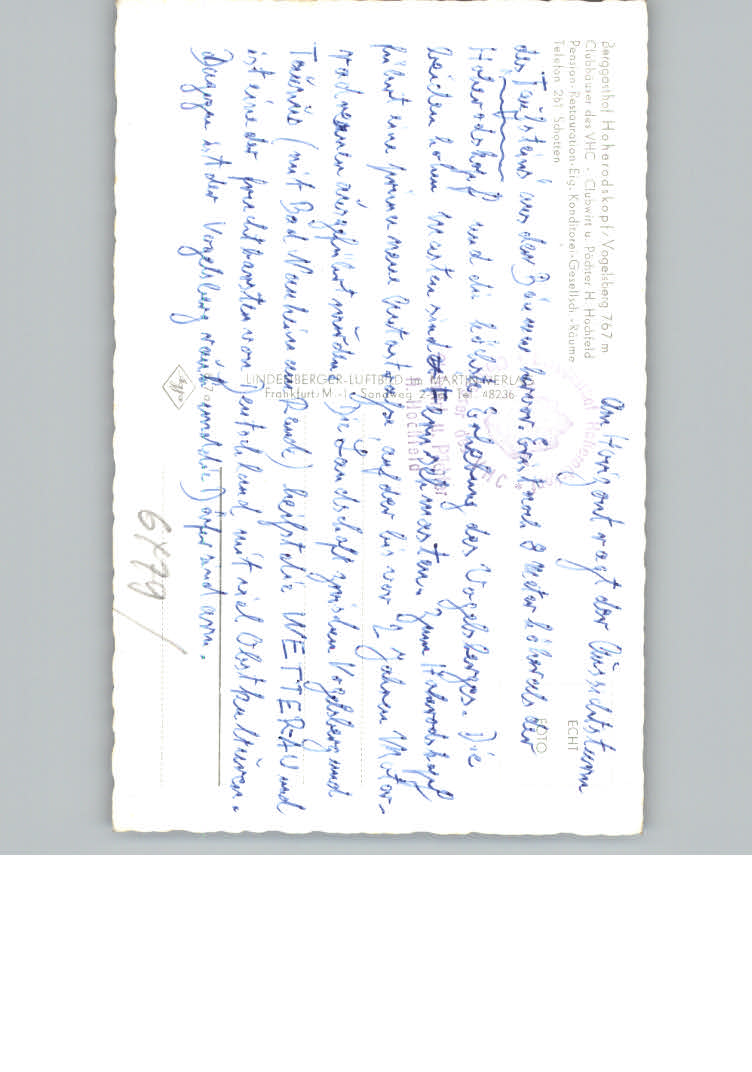 Berggasthof Hoherodskopf/Vogelsberg 767 m
Clubhäuser des VHC · Clubwirt u. Pächter H. Hochfeld
Pension · Restauration · Eig. Konditorei · Gesellsch.-Räume
Telefon 261 Schotten
ECHT
FOTO
LINDENBERGER-LUFTBILD im MARTIN-VERLAG
Frankfurt/M.-1 · Sandweg Tel. 48236
Am Horizont ragt der Aussichtsturm
des Taufsteins aus den Bäumen hervor. Er ist noch 8 meter höher als der
Hoherodskopf und die höchste Erhebung des Vogelsberges. Die
beiden hohen masten sind Fernsehmasten. Zum Hoherodskopf
führt eine prima neue Autostraße auf der bis vor 2 Jahren Motor-
radrennen ausgeführt wurden. Die Landschaft zwischen Vogelsberg und
Taunus (mit Bad Nauheim am Rande) heißt die WETTERAU und
ist eine der fruchtbarsten von Deutschland mit viel Obstkulturen.
Dagegen ist der Vogelsberg rauh und die Dörfer sind arm.
H. Hochfeld
Agfa
6479/